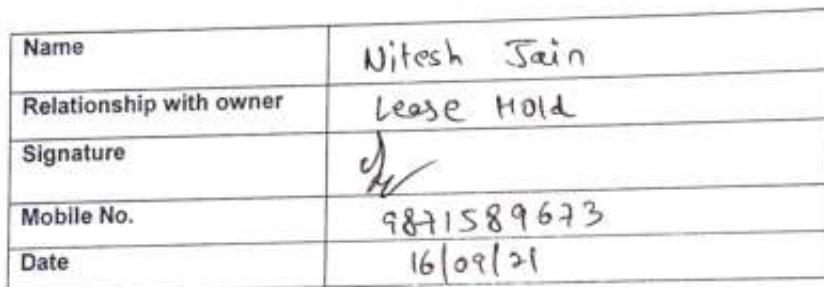 Name Nitesh Jain
Relationship with owner Lease Hold
Signature
Mobile No. 9871589673
Date 16/09/21